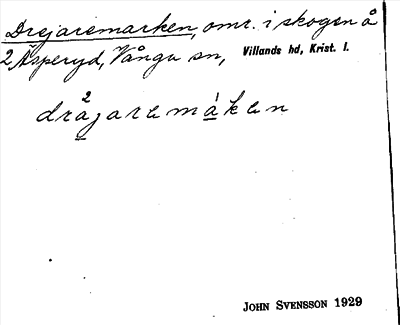 Drejaremarken, omr. i skogen å
2 Äsperyd, Vånga sn, Villands hd, Krist. l.
drä²jaremàken
JOHN SVENSSON 1929